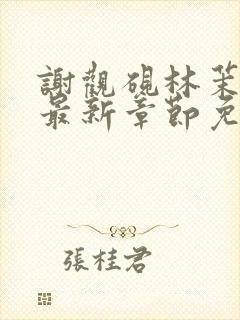 謝觀硯林茉
最新章節免
張桂君